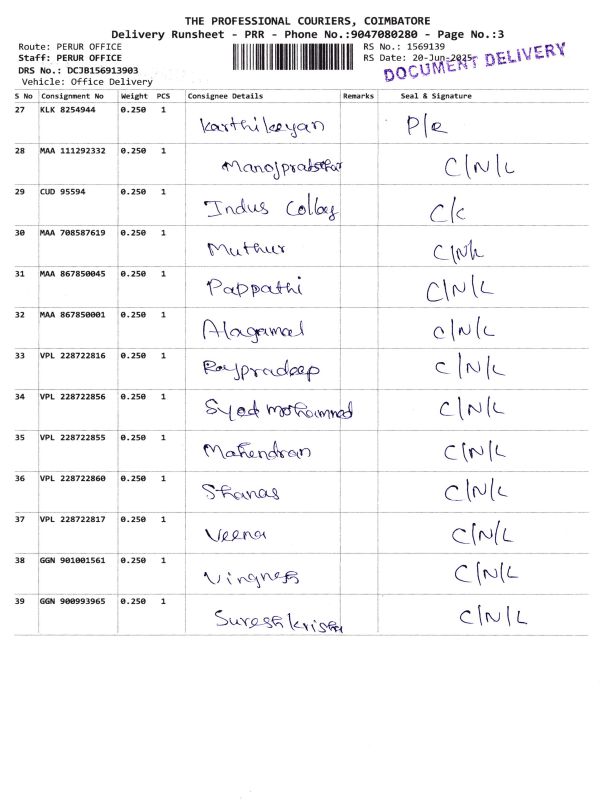 THE PROFESSIONAL COURIERS, COIMBATORE
Delivery Runsheet - PRR - Phone No.:9047080280 - Page No.:3
Route: PERUR OFFICE RS No.: 1569139
Staff: PERUR OFFICE RS Date: 20-Jun-2025
DRS No.: DCJB156913903
DOCUMENT DELIVERY
Vehicle: Office Delivery
S No Consignment No Weight PCS Consignee Details Remarks Seal & Signature
27 KLK 8254944 0.250 1 Karthikeyan P/R
28 MAA 111292332 0.250 1 C/N/L
29 CUD 95594 0.250 1 Indus Collag C/c
30 MAA 708587619 0.250 1 Muthur C/N/L
31 MAA 867850045 0.250 1 Pappathi C/N/L
32 MAA 867850001 0.250 1 C/N/L
33 VPL 228722816 0.250 1 Rajpradeep C/N/L
34 VPL 228722856 0.250 1 Syed mohammed C/N/L
35 VPL 228722855 0.250 1 Mahendran C/N/L
36 VPL 228722860 0.250 1 Shanas C/N/L
37 VPL 228722817 0.250 1 Veena C/N/L
38 GGN 901001561 0.250 1 Vingnesh C/N/L
39 GGN 900993965 0.250 1 Suresh krishn C/N/L